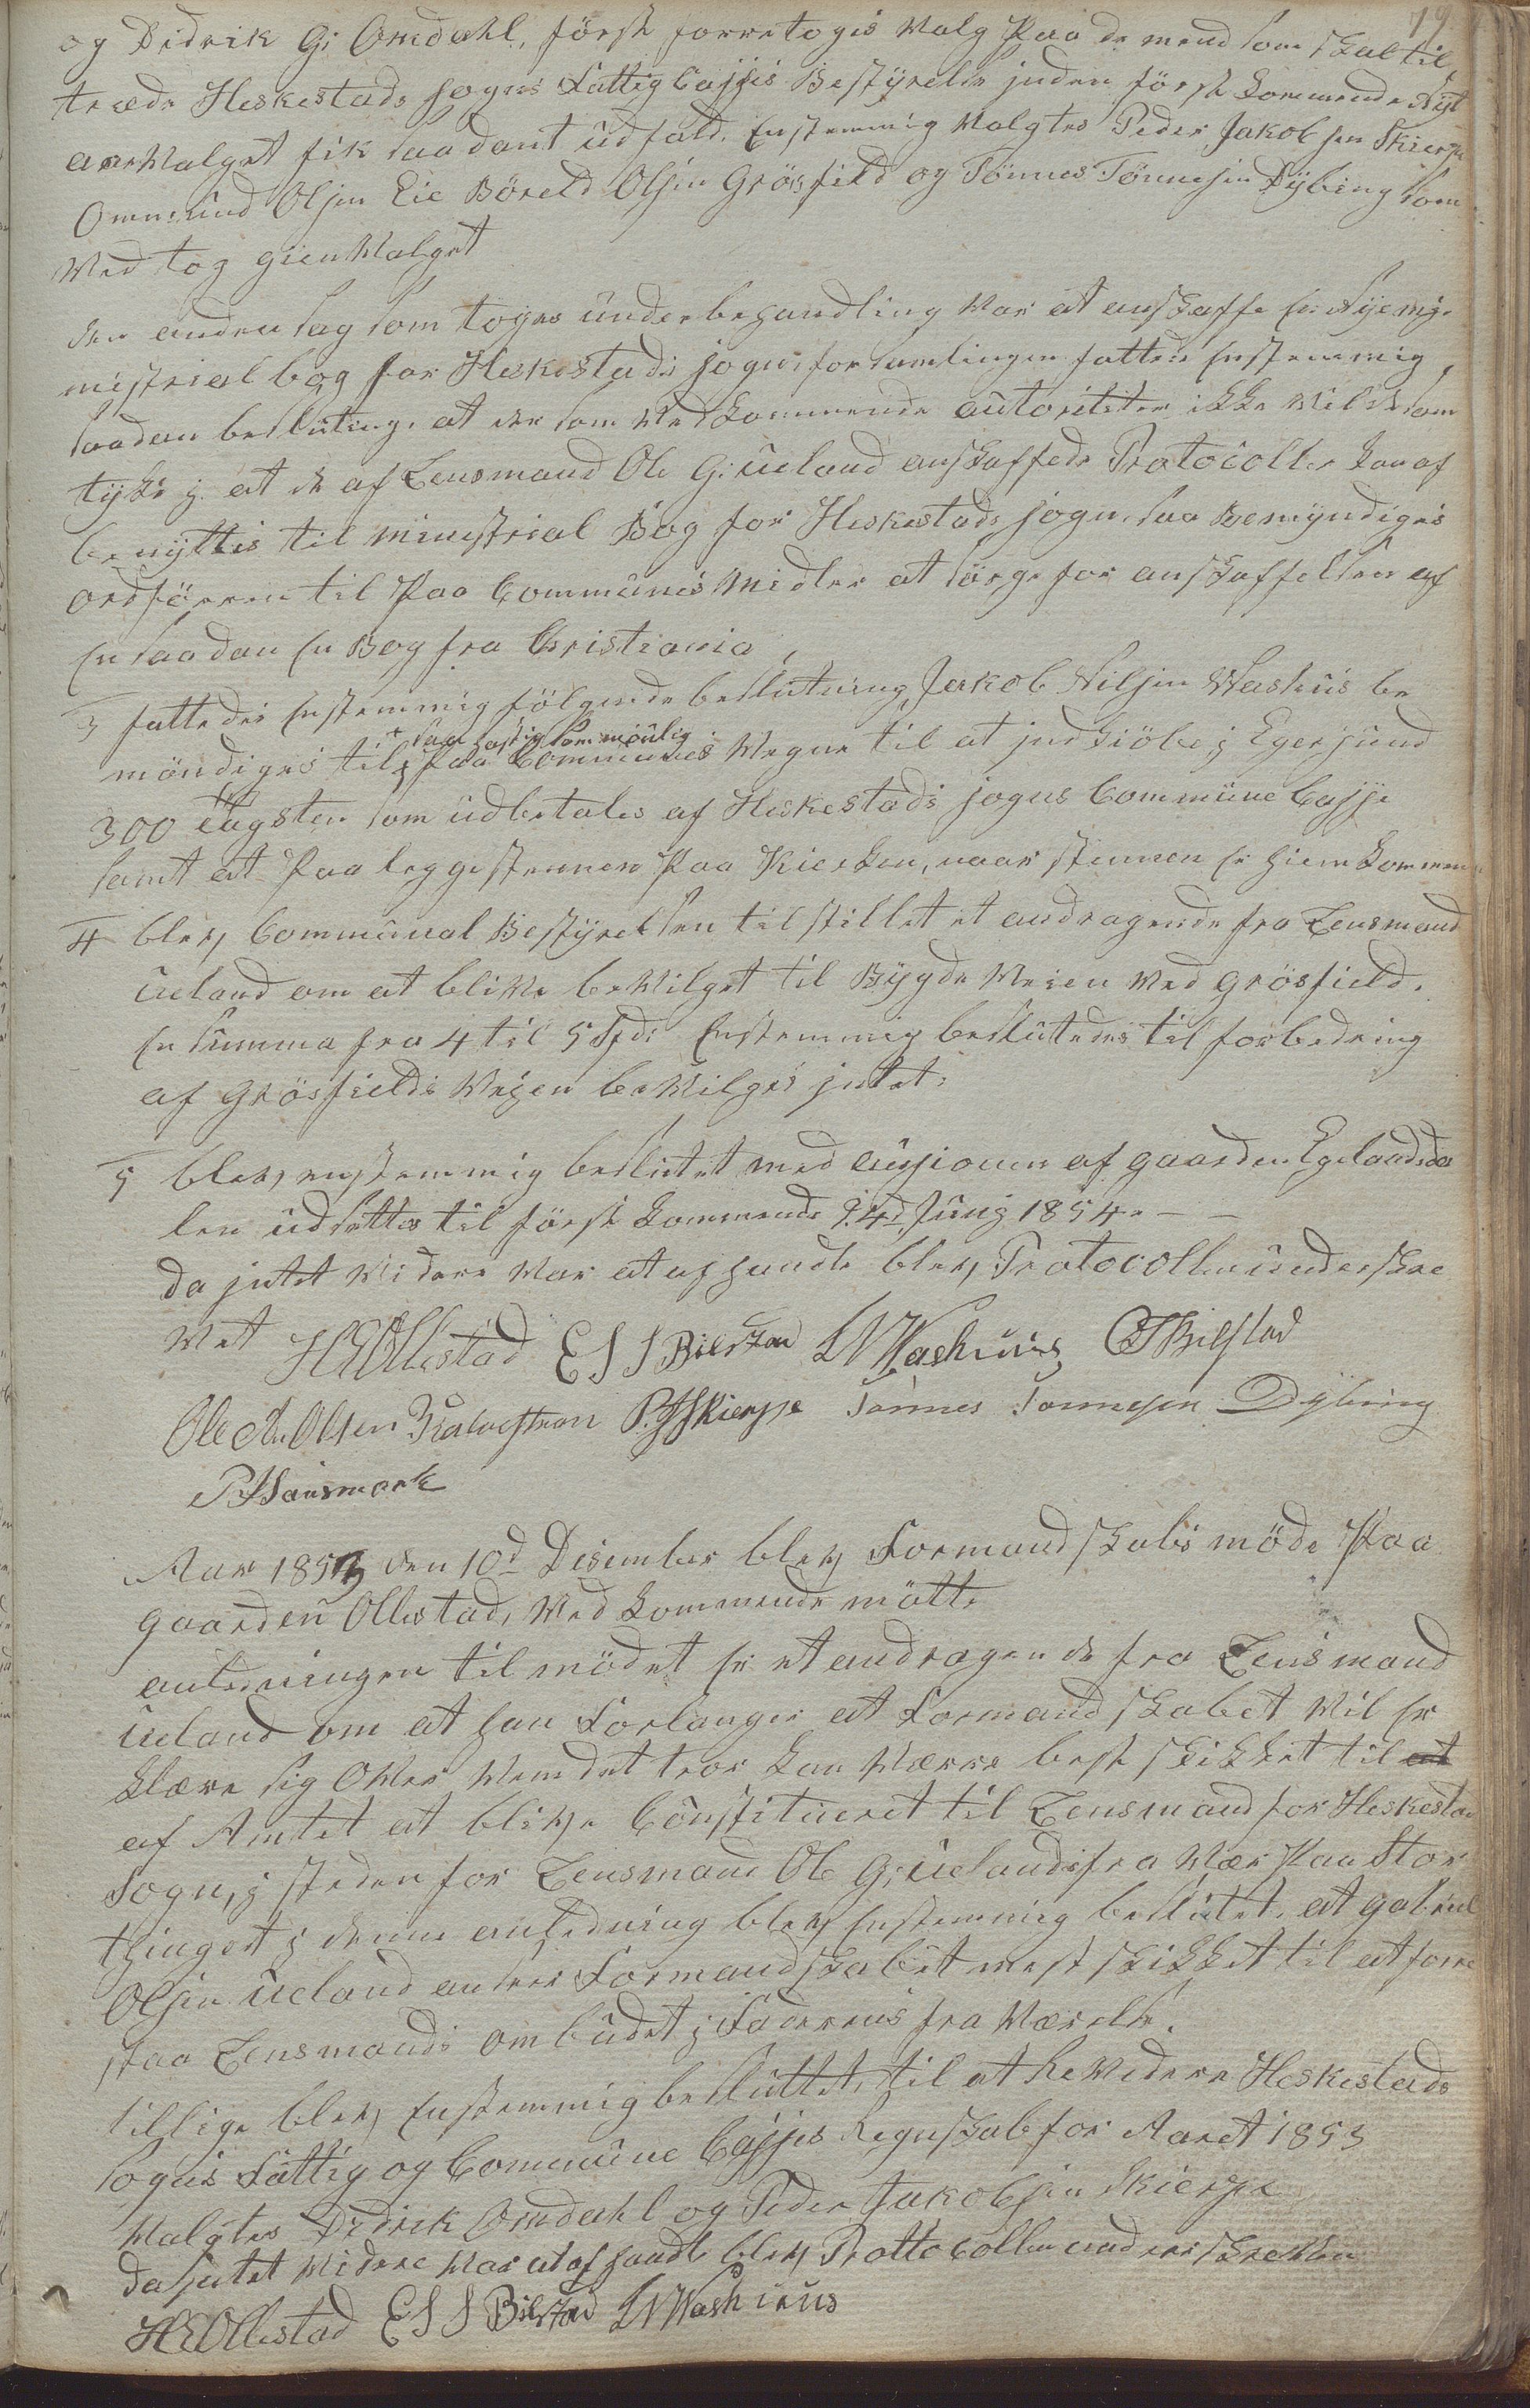 79
og Didrik G: Omdahl, først forretoges Valg Paa de mend som skal til
træde Heskestads sogns Fattig Casjes Bestyrelse inden først kommende Nyt
aar Valget fik saadant udfald. Enstemmig Valgtes Peder Jakobsen Skierpe
Ommund Olsen Eie Børeld Olsen Grøsfield og Tønnes Tønnesen Dybing som
Ved tog gien Valget
den anden sag som toges under behandling Var at anskaffe en Nye mi
nistrial bog for Heskestads sogn, forsamlingen fattede Enstemmig
saadan beslutning, at der som Vedkommende autoriteter ikke Vilde sam
tyke j. at de af Lensmand Ole G: Ueland anskaffede Protocoller kan af
benyttes til ministrial Bog for Heskestads sogn, saa Bemyndiges
ordføreren til Paa Communes Midler at sørge for anskaffelsen af
En saadan En Bog fra Christiania
3 fattedes Enstemmig følgende beslutning, Jakob Nilsen Washus be
+ saa hastig som mulig
møndiges til + Paa Communes Vegne til at indkiøbe j Egersund
300 tagsten som udbetales af Heskestads sogns Commune Casje
samt at Paa legge stennen Paa Kierken, naar stennen er hiemkommen
4 blev Communal Bestyrelsen tilstillet et andragende fra Lensmand
Ueland om at blive beVilget til Bygde Veien Ved Grøsfield.
En Summa fra 4 til 5 Spd: Enstemmig beslutedes til forbedring
af Grøsfields Vejen beVilges intet.
5 blev enstemmig beslutet med ausionen af gaarden Egelandsda
len udsettes til først kommende 24d Junj 1854. — —
da intet Videre Var at afhandle blev Protocollen underskre
Vet H E Ollestad E S S Bilstad L N Washuus O T Bilstad
Ole An Olsen Kalvestrøn P. J Skierpe Tønnes Tønnesen Dybing
P Hansmark
Aar 1853 den 10d Desember blev Formandskabs møde Paa
gaarden Ollestad, Vedkommende møtte
anledningen til mødet er et andragende fra Lensmand
Ueland om at han Forlanger at Formandskabet Vil er
klære sig Over Vem det tror kan Værre best skikket til
af Amtet at blive Constitueret til Lensmand for Heskestad
Sogn, j steden for Lensmand Ole G: Uelands fra Vær Paa Stor
thinget j denne anledning blev Enstemmig beslutet, at gabriel
Olsen Ueland anseer Formandskabet mest skikket til at forre
staa Lensmands ombudet j Faderens fra Værelse.
tillige blev Enstemmig besluttet, til at ReVidere Heskestads
sogns Fattig og Commune Casjes Regnskab for Aaret 1853
Valgtes Didrik Omdahl og Peder Jakobsen Skierpe
da intet Videre Var at afhandle blev Prottocollen underskreVen
H E Ollestad E S S Bilstad L N Washuus